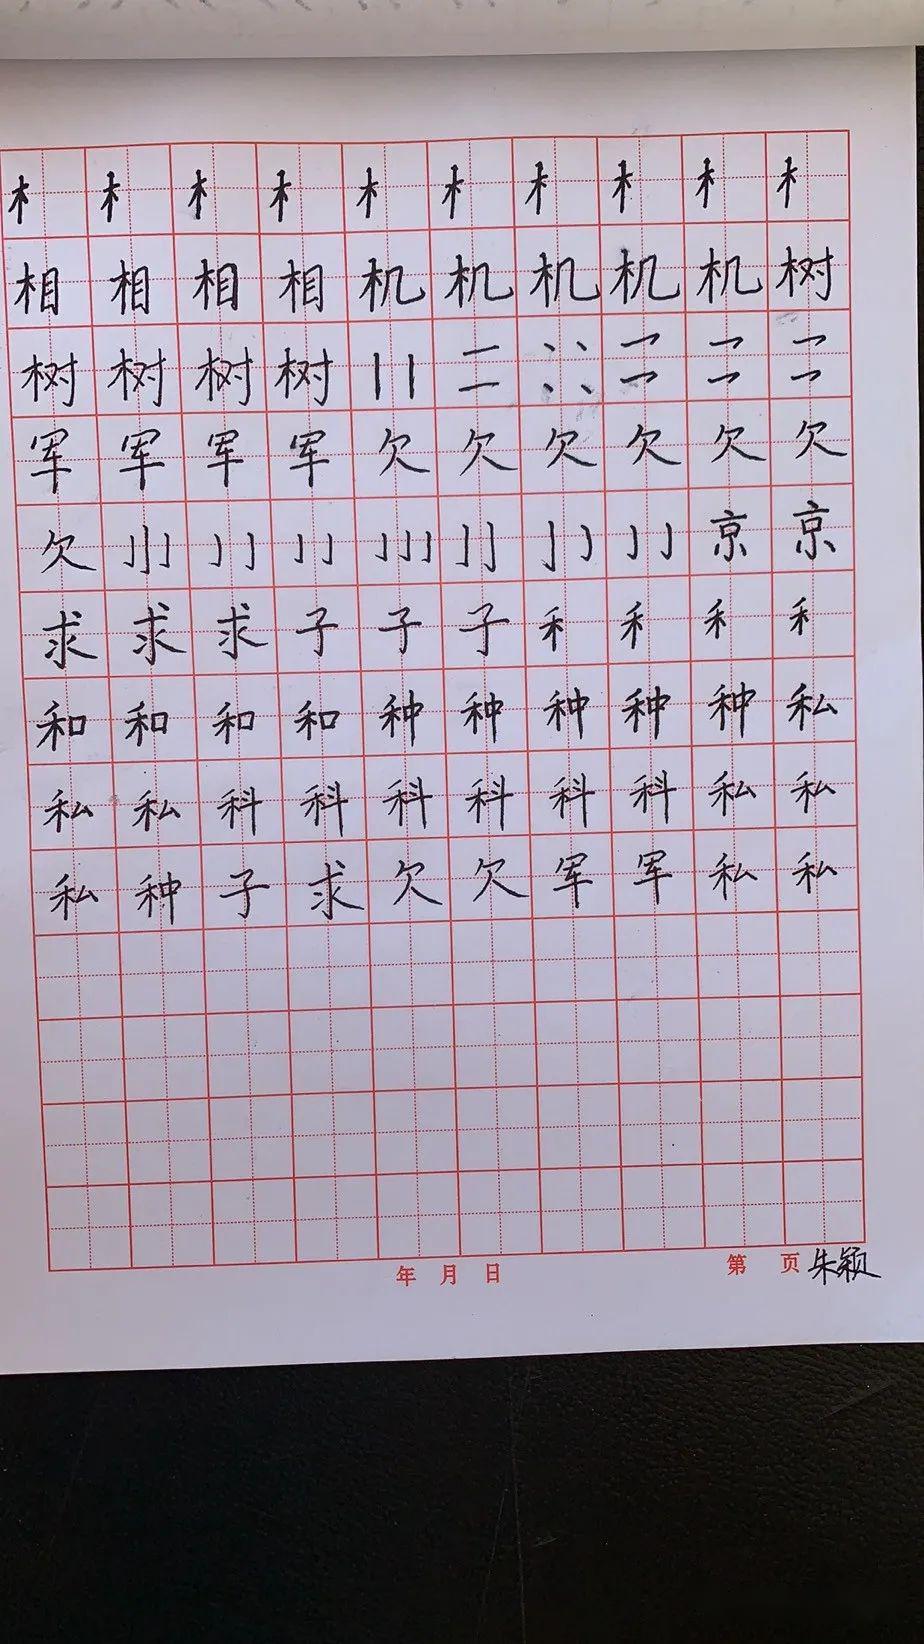 木 木 木 木 木 木 木 木 木 木
相 相 相 相 机 机 机 机 机 树
树 树 树 树
军 军 军 军 欠 欠 欠 欠 欠 欠
欠 京 京
求 求 求 子 子 子 禾 禾 禾 禾
和 和 和 和 种 种 种 种 种 私
私 私 科 科 科 科 科 科 私 私
私 种 子 求 欠 欠 军 军 私 私
年 月 日 第 页 朱颖